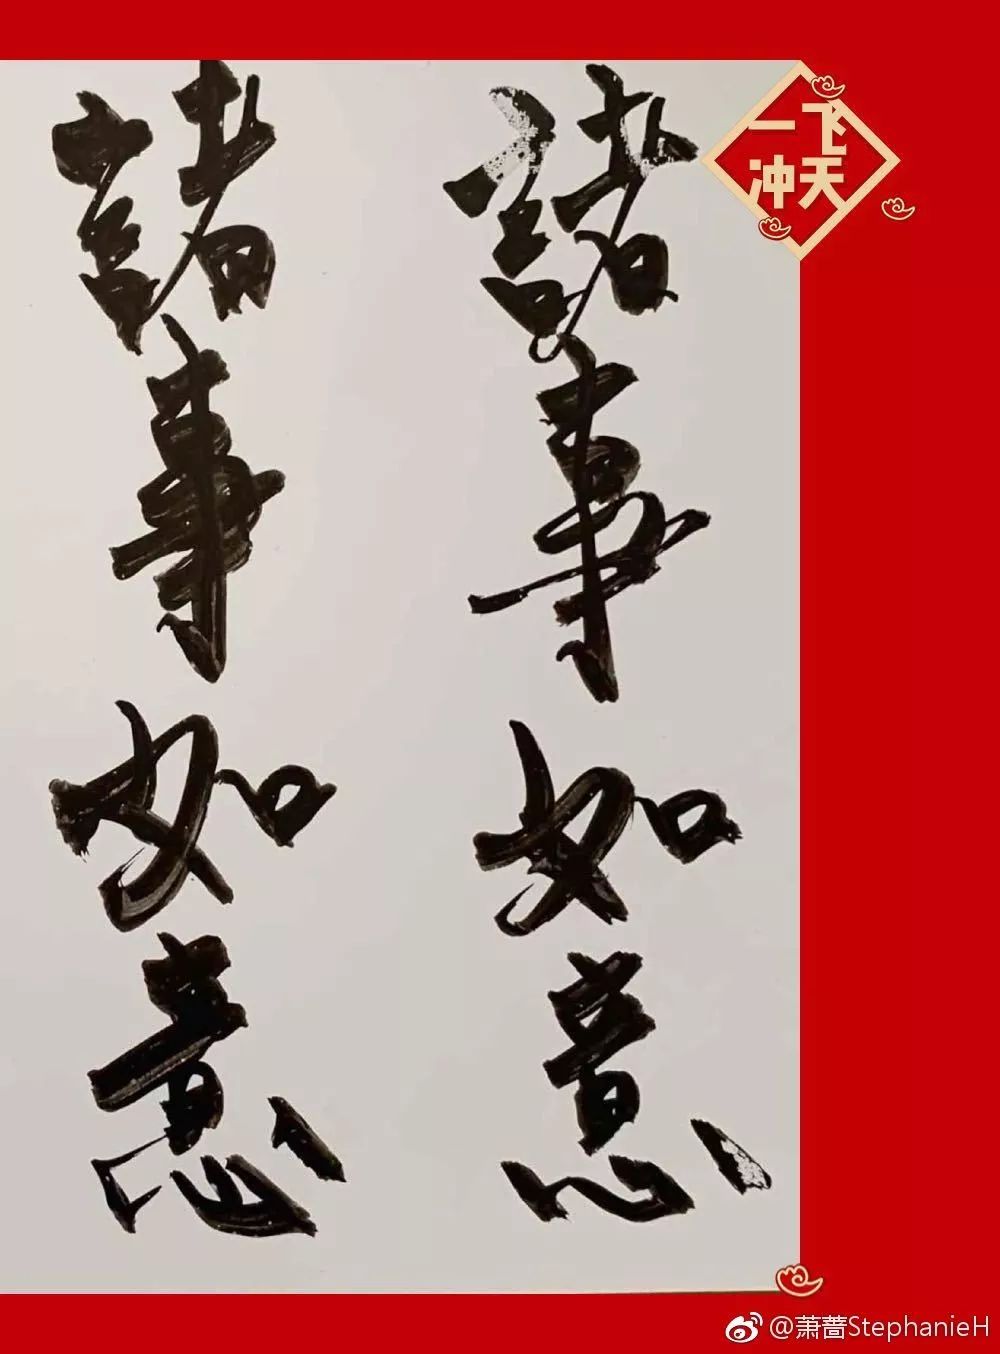 諸事如意
諸事如意
一飞
冲天
@萧蔷StephanieH